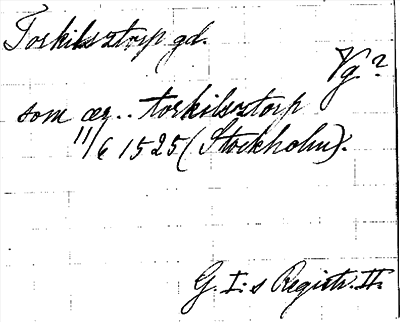 Torkilsztorp gd.
Vg?
som ær.. torkilsztorp
11/6 1525 (Stockholm).
G. I:s Registr. II.